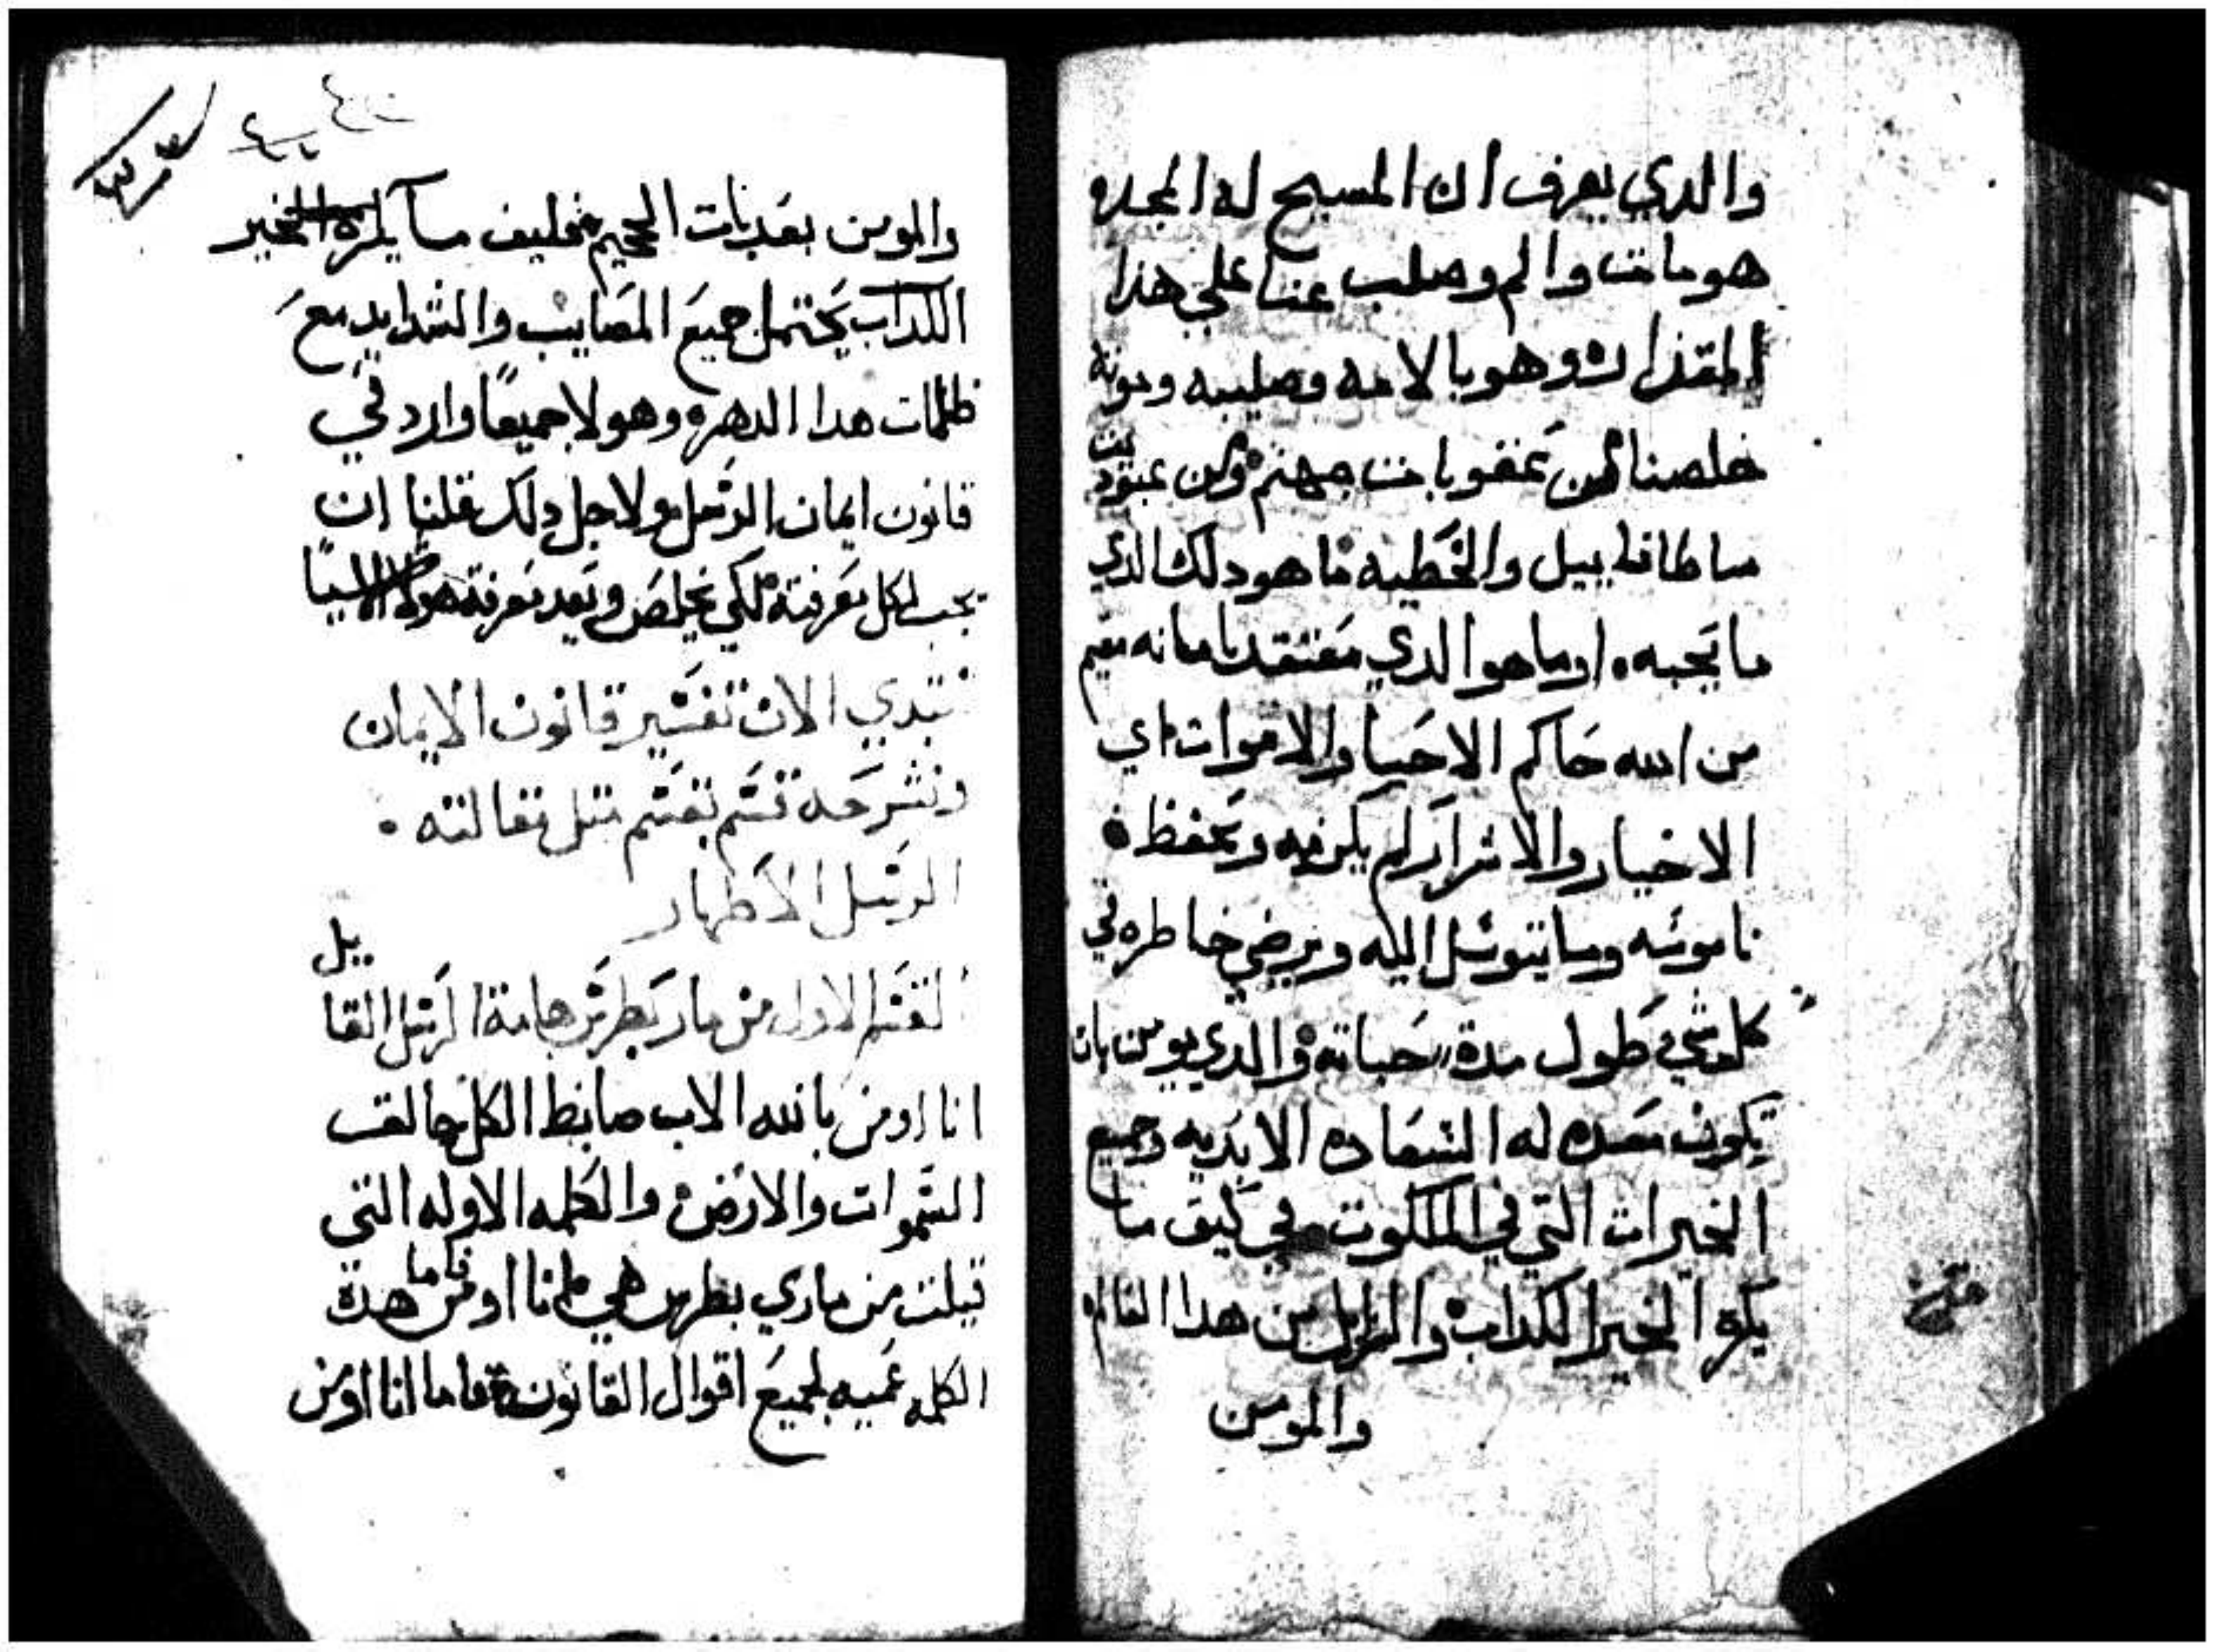 والدي يعرف ان المسيح له المجده
هو مات والم وصلب عنا علي هذا
المقدار وهو بالامه وصليبه وموته
خلصنا من عقوبات جهنم ومن عبوديت
ساطانابيل والخطيه ما هو دلك الدي
ما يحبه او ما هو الدي معتقد بامانه مقيم
من الله حاكم الاحيا والاموات اي
الاخيار والاشرار لم يكرمه ويحفظ
ناموسه وما يتوسل اليه ويرضي خاطره في
كلمشي في طول مدة حياته والدي يومن بان
تكون معده له السعاده الابديه وجميع
الخيرات التي في الملكوت في كيف ما
يكره الخير الكداب والزايل من هدا العالم
والمومن
والمومن بعدبات الجحيم فكيف ما يكره الخير
الكداب يحتمل جميع المصايب والشدايد مع
ظلمات هدا الدهر وهولا جميعا وارد في
قانون ايمان الرسل ولاجل دلك قلنا ان
يجب لكل معرفته لكي يخلص وبعد معرفة هولا الاشيا
نبتدي الان تفسير قانون الايمان
ونشرحه قسم بقسم مثل مقالته
الرسل الاطهار
القسم الاول من مار بطرس هامة الرسل القايل
انا اومن بالله الاب ضابط الكل خالق
السموات والارض والكلمه الاوله التي
قيلت من ماري بطرس هي انا اومن فاما هدة
الكلمه عميه لجميع اقوال القانون فاما انا اومن